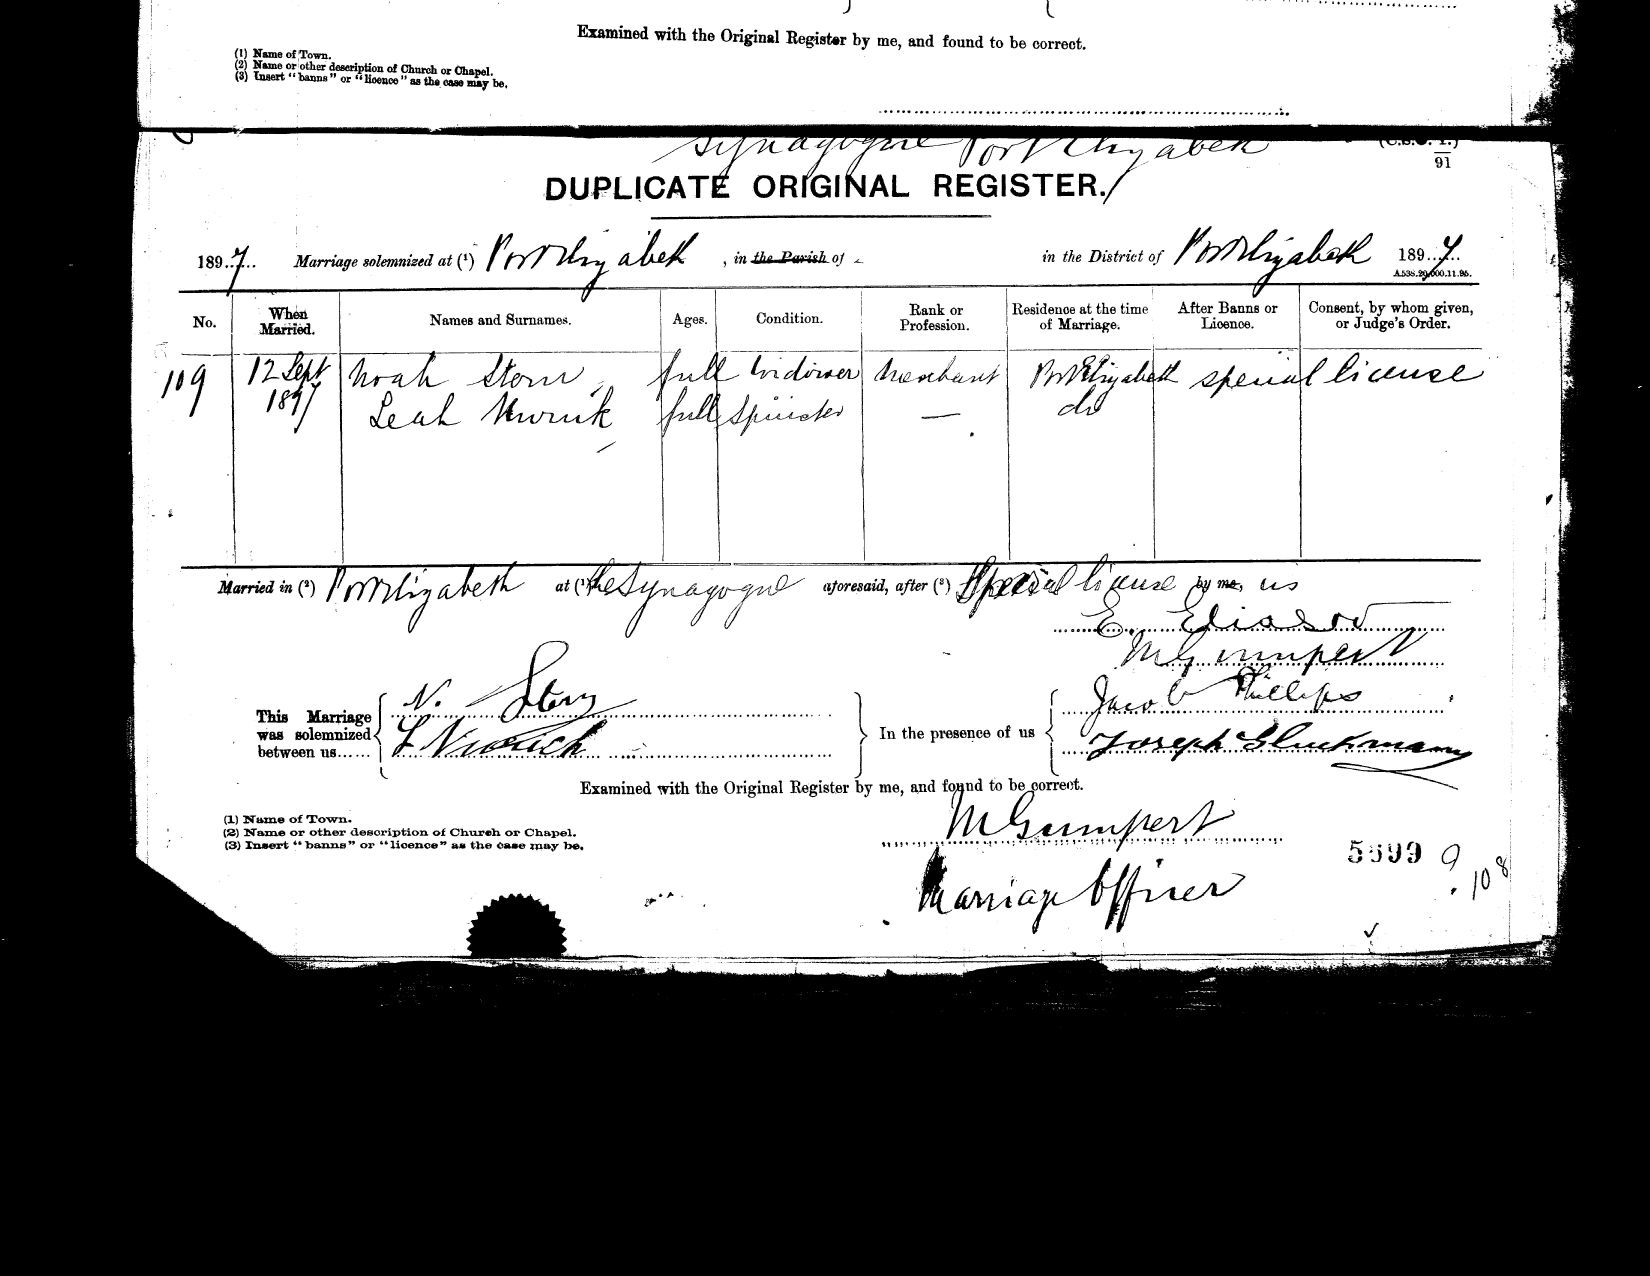 Examined with the Original Register by me, and found to be correct.
(1) Name of Town.
(2) Name or other description of Church or Chapel.
(3) Insert "banns" or "licence" as the case may be.
Synagogue Port Elizabeth
91
DUPLICATE ORIGINAL REGISTER.
1897 Marriage solemnized at (1) Port Elizabeth, in the Parish of in the District of Port Elizabeth 1897
No. When Married. Names and Surnames. Ages. Condition. Rank or Profession. Residence at the time of Marriage. After Banns or Licence. Consent, by whom given, or Judge's Order.
109 12 Sept 1897 Noah Stern full Widower Merchant Port Elizabeth special license
Leah full Spinster — do
Married in (2) Port Elizabeth at (1) the Synagogue aforesaid, after (3) Special license by me, us
E. Eliasov
M Gumpert
This Marriage was solemnized between us...... N. Stern
L
In the presence of us Jacob Phillips
Joseph Gluckmann
Examined with the Original Register by me, and found to be correct.
(1) Name of Town.
(2) Name or other description of Church or Chapel.
(3) Insert "banns" or "licence" as the case may be.
M Gumpert
Marriage Officer
9
108